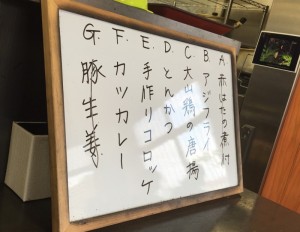 A. 赤はたの煮付
B. アジフライ
C. 大山鶏の唐揚
D. とんかつ
E. 手作りコロッケ
F. カツカレー
G. 豚生姜